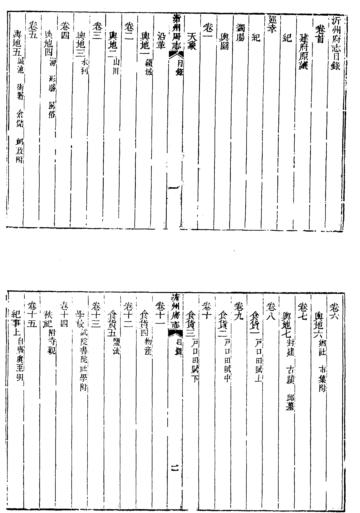 沂州府志目錄
卷首
建府原議
紀
巡幸
紀
蠲賑
輿圖
卷一
天章
沂州府志 目錄 一
沿革
輿地一 疆域
卷二
輿地二 山川
卷三
輿地三 水利
卷四
輿地四 形勝 風俗
卷五
輿地五 城池 街署 倉儲 郵政附
卷六
輿地六 鄉社 市集附
卷七
輿地七 封建 古蹟 邱墓
卷八
食貨一 戶口田賦上
卷九
食貨二 戶口田賦中
卷十
食貨三 戶口田賦下
沂州府志 目錄 二
卷十一
食貨四 物產
卷十二
食貨五 鹽法
卷十三
學校 試院書院社學附
卷十四
秩祀 附寺觀
卷十五
紀事上 自唐虞至明